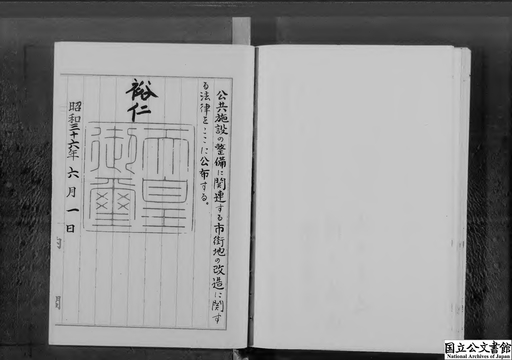 公共施設の整備に関連する市街地の改造に関す
る法律をここに公布する。
裕仁
天皇
御璽
昭和三十六年六月一日
国立公文書館
National Archives of Japan